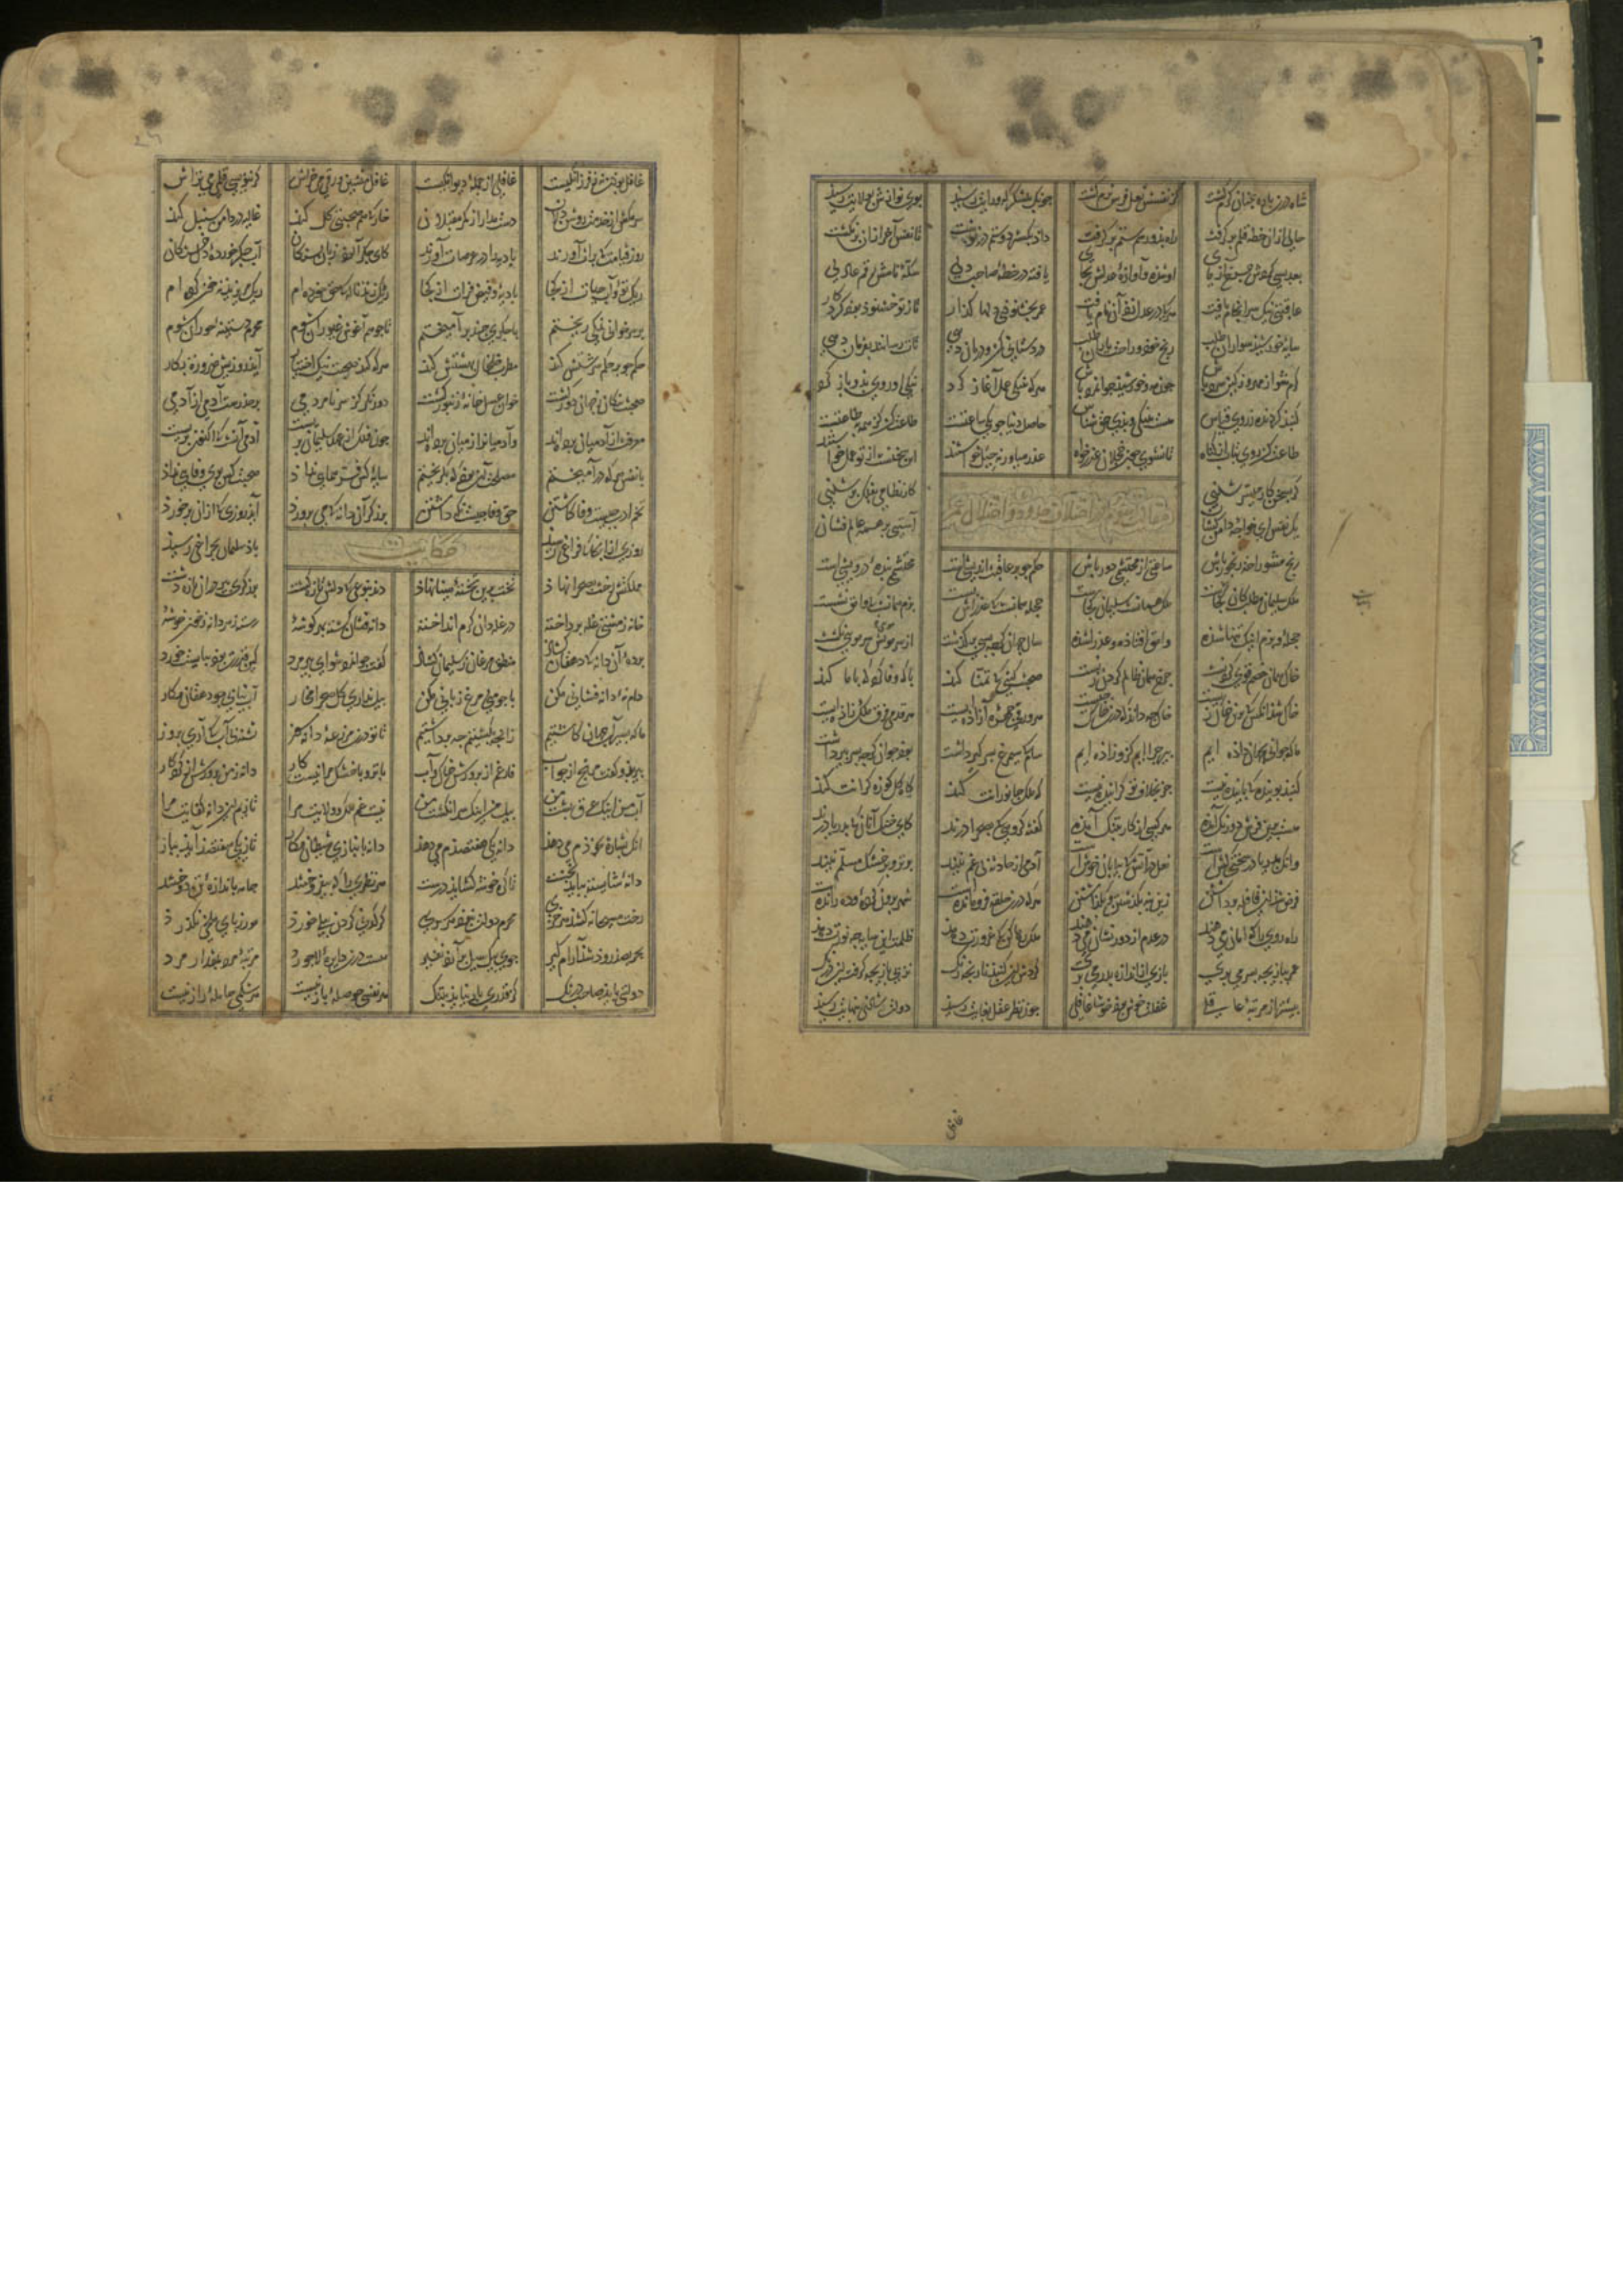 شاه در آن باره چنان گرم گشت کز نفسش نعل فرس نرم گشت چونکه بلشکرگه و رایت رسید بوی نوازش بولایت رسید
حالی از آن خطه قلم برگرفت راه بد و رسم ستم برگرفت داد بگسترد و ستم درنوشت تا نفس آخر از آن برنگشت
بعد بسی گردش چرخ آزمای او شده و آوازه عدلش بجای یافته در خطه صاحب دلی سکه نامش رقم عادلی
عاقبتی نیک سرانجام یافت هرکه در عدل زد آن نام یافت عمر بخشنودی دلها گذار تا ز تو خشنود بود کردگار
سایه خورشید سواران طلب رنج خود و راحت یاران طلب درد ستانی کن و درمان دهی تات رسانند بفرمان دهی
گرم شو از مهر و ز کین سرد باش چون مه و خورشید جوانمرد باش هرکه بنیکی عمل آغاز کرد نیکی او روی بدو باز کرد
گنبد گردنده ز روی قیاس هست بنیکی و بدی حق شناس حاصل دنیا چو یکی ساعتست طاعت کن کز همه به طاعتست
طاعت کن روی بتاب از گناه تا نشوی چون خجلان عذر خواه عذر میاور نه حیل خواستند این سخنست از تو عمل خواستند
گر بسخن کار میسر شدی کار نظامی بفلک بر شدی
یک نفس ای خواجه دامن کشان آستینی بر همه عالم فشان
رنج مشو راحت رنجور باش ساعتی از محتشمی دور باش حکم چو بر عاقبت اندیشیست محتشمی بنده درویشیست
ملک سلیمان مطلب کان کجاست ملک همانست سلیمان کجاست حجله همانست که عذراش بست بزم همانست که وامق نشست
حجله و بزم اینک تنها شده وامق افتاده و عذرا شده سال جهان گرچه بسی برگذشت از سر مویش سر مویی نگشت
خاک همان خصم قوی گردنست چرخ همان ظالم گردن زنست صحبت گیتی که تمنا کند با که وفا کرد که با ما کند
خاک شد آنکس که برین خاک زیست خاک چه داند که درین خاک چیست هر ورقی چهره آزاده ایست هر قدمی فرق ملک زاده ایست
ما که جوانی بجهان داده ایم پیر چراییم کزو زاده ایم سام که سیمرغ پسر گیر داشت بود جوان گرچه پسر پیر داشت
گنبد پوینده که پاینده نیست جز بخلاف تو گراینده نیست گه ملک جانورانت کند گاه گل کوزه گرانت کند
هست برین فرش دو رنگ آمده هر کسی از کار بتنگ آمده گفته گروهی که بصحرا درند کای خنک آنان که بدریا درند
وانکه بدریا در سختی کش است نعل در آتش که بیابان خوش است آدمی از حادثه بی غم نیند بر تر و بر خشک مسلم نیند
فرض شد این قافله برداشتن زین بنه بگذشتن و بگذاشتن هرکه درین حلقه فرو مانده است شهر برون کرده و ده رانده است
راه روی را که امان می دهند در عدم از دور نشان می دهند ملک رها کن که غرورت دهد ظلمت این سایه چه نورت دهد
عمر ببازیچه بسر می بری بازی از اندازه بدر می بری گردش این گنبد بازیچه رنگ نز پی بازیچه گرفت این درنگ
پیشتر از مرتبه عاقلی غفلت خوش بود خوشا غافلی چون نظر عقل بغایت رسید دولت شادی بنهایت رسید
غافل
غافل بودن نه ز فرزانگیست غافلی از جمله دیوانگیست غافل منشین ورقی می خراش گر ننویسی قلمی می تراش
سر مکش از خدمت روشن دلان دست مدار از کمر مقبلان خار که هم صحبتی گل کند غالیه در دامن سنبل کند
روز قیامت که برات آورند بادیه را در عرصات آورند کای جگر آلود زبان بستگان آب جگر خورده دل خستگان
ریگ تو و آب حیات از کجا بادیه و فیض فرات از کجا ریگ زند ناله که خون خورده ام ریگ مریزید نه خون کرده ام
بر سر خوانی نمکی ریختم با جگری چند برآمیختم تا چو هم آغوش غیوران شوم محرم دستینه حوران شوم
حکم چو بر حکم سرشتش کند مطرب خلخال بهشتش کند هرکه کند صحبت نیک اختیار آید روزیش ضرورت بکار
صحبت نیکان ز جهان دور گشت خوان عسل خانه زنبور گشت دور نگر کز سر نامردمی بر حذرست آدمی از آدمی
معرفت از آدمیان برده اند وآدمیان را ز میان برده اند چون فلک از عهد سلیمان بریست آدمی آنست که اکنون پریست
با نفس هرکه درآمیختم مصلحت آن بود که بگریختم سایه کس فر همایی نداد صحبت کس بوی وفایی نداد
تخم ادب چیست وفا کاشتن حق وفا چیست نگه داشتن برزگر آن دانه که می پرورد آید روزی که از آن برخورد
حکایت
روزی از آنجا که فراغی رسید باد سلیمان بچراغی رسید
مملکتش رخت بصحرا نهاد تخت برین تخته مینا نهاد دید بنوعی که دلش پاره گشت برزگری پیر در آن ساده دشت
خانه ز مشتی غله پرداخته در غله دان کرم انداخته دانه فشان گشته بهر گوشه رسته ز هر دانه او خوشه
پرده آن دانه که دهقان گشاد منطق مرغان ز سلیمان گشاد گفت جوانمرد شو ای پیرمرد کین قدرت بود ببایست خورد
دام نه دانه فشانی مکن با چو منی مرغ زبانی مکن بیل نداری گل صحرا مخار آب نیابی جو دهقان مکار
ما که کاشتیم زانچه بکشتیم چه برداشتیم تا تو درین مزرعه دانه سوز تشنه و بی آب آری بروز
پیر بدو گفت مرنج از جواب فارغم از پرورش خاک و آب با تر و با خشک مرا نیست کار دانه ز من پرورش از کردگار
آب من اینک عرق پشت من بیل من اینک سر انگشت من نیست غم ملک و ولایت مرا تا زیم این دانه کفایت مرا
آنک بشارت بخودم می دهد دانه یکی هفتصدم می دهد دانه بانبازی شیطان مکار تا ز یکی هفتصد آید ببار
دانه شایسته بباید نخست تا گره خوشه گشاید درست هر نظری را که برافروختند جامه باندازه تن دوختند
رخت مسیحا نکشد هر خری محرم دولت نبود هر سری کرگدنی گردن پیلی خورد مور ز پای ملخی نگذرد
بحر بصد رود شد آرام گیر جوی بیک سیل برآرد نفیر هست درین دایره لاجورد مرتبه مرد بمقدار مرد
دولتی باید صاحب درنگ کز قدری باد نیاید بتنگ هر نفسی حوصله راز نیست هر شکمی حامله راز نیست